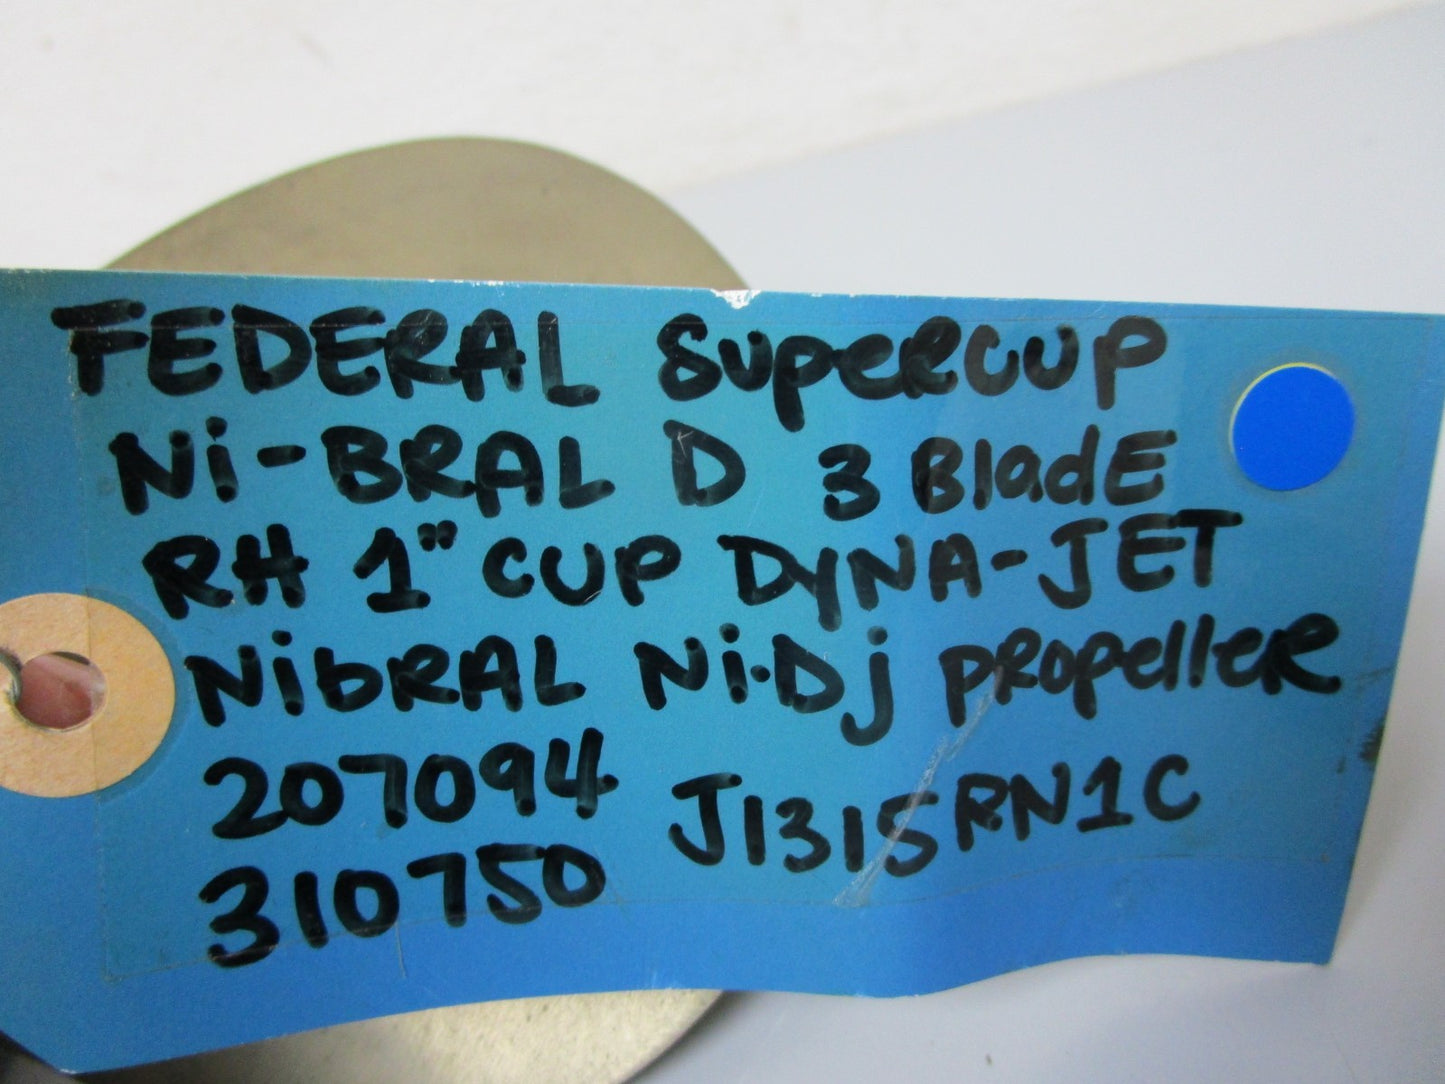 FEDERAL SUPERCUP
Ni-BRAL D 3 BladE
RH 1" CUP DYNA-JET
NibRAL Ni.Dj pROpelleR
207094 J1315RN1C
310750